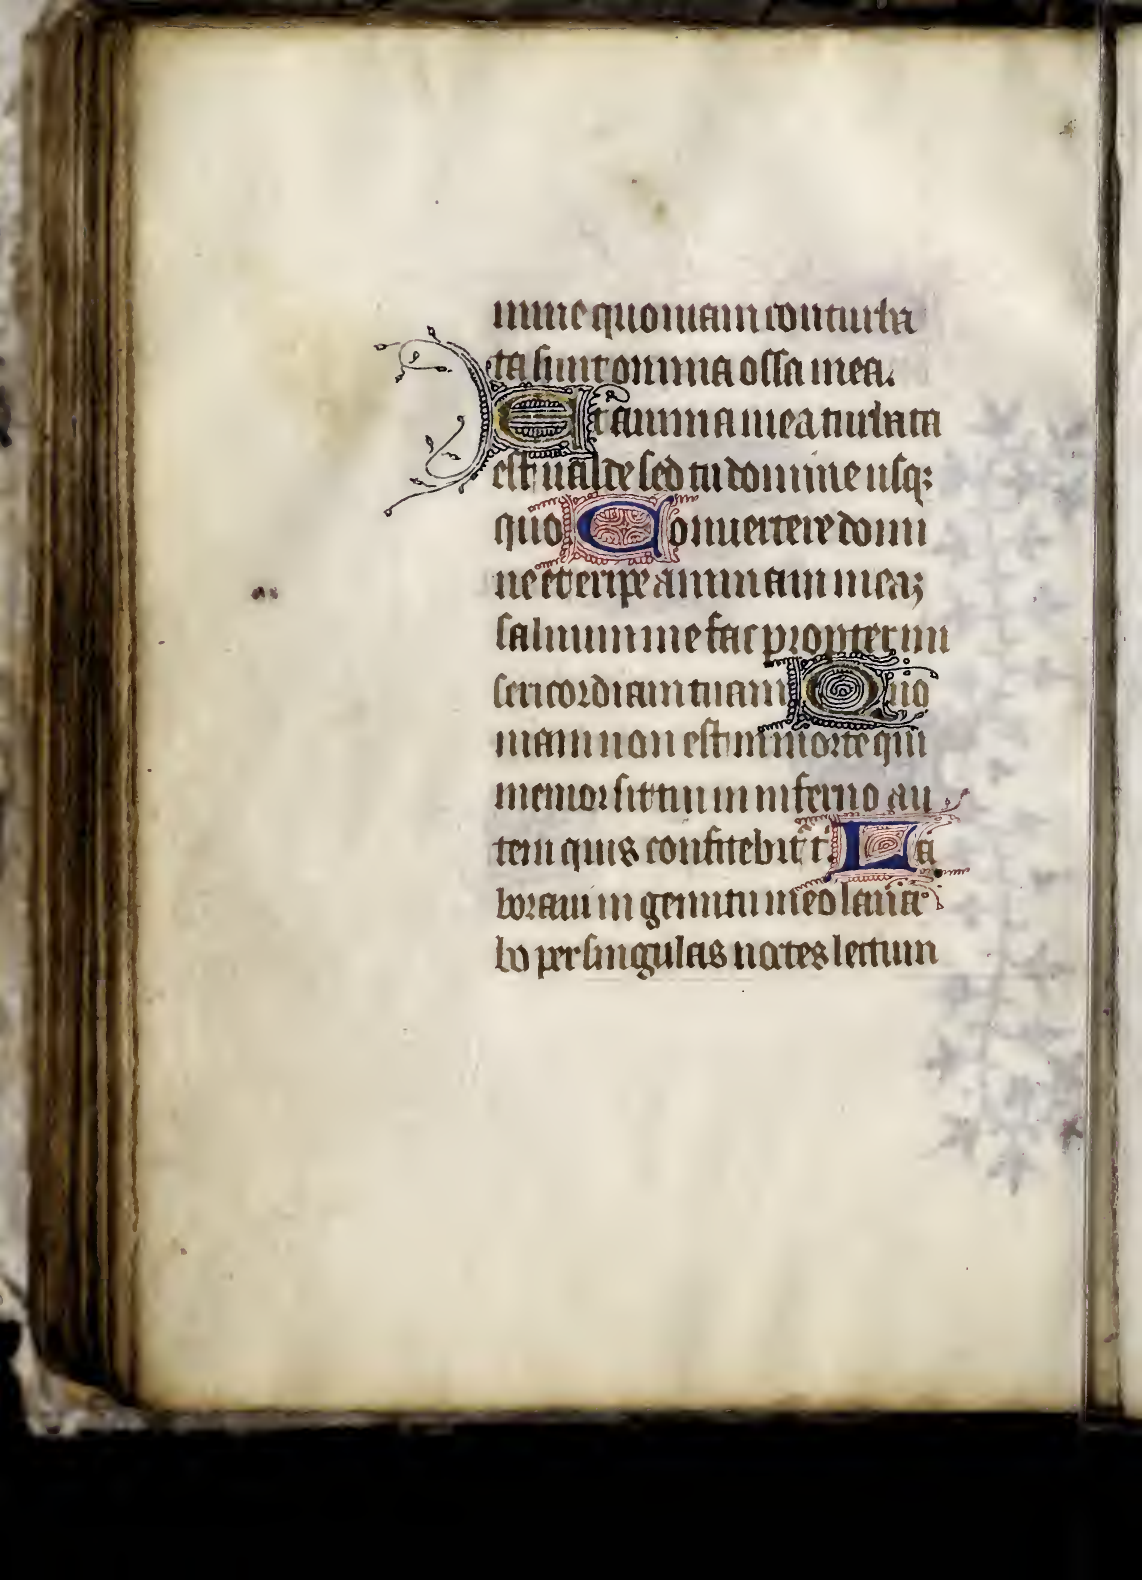 mine quoniam conturba
ta sunt omnia ossa mea.
Et anima mea turbata
est ualde sed tu domine usq;
quo Conuertere domi
ne et eripe animam meaz
saluum me fac propter mi
sericordiam tuam Quo
niam non est in morte qui
memor sit tui in inferno au
tem quis confitebit~ t. La
boraui in gemitu meo laua
bo per singulas noctes lectum